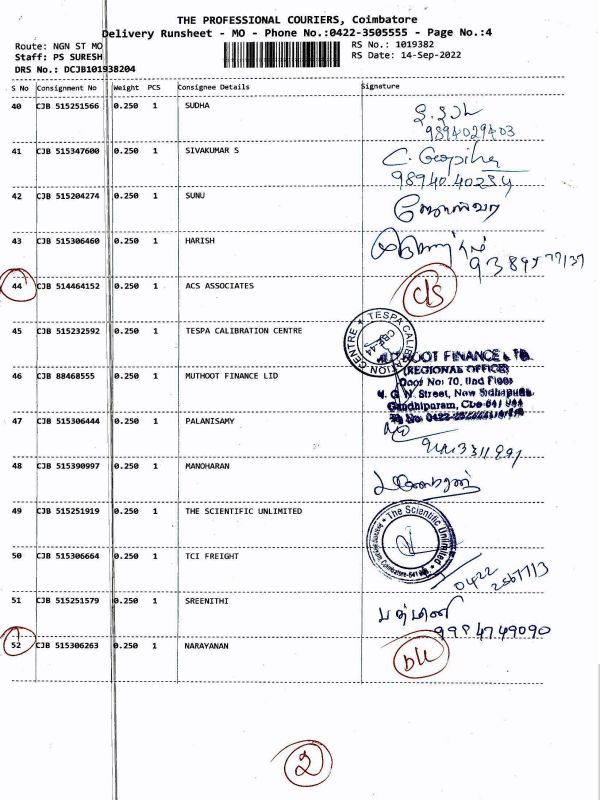 THE PROFESSIONAL COURIERS, Coimbatore
Delivery Runsheet - MO - Phone No.:0422-3505555 - Page No.:4
Route: NGN ST MO
Staff: PS SURESH
DRS No.: DCJB101938204
RS No.: 1019382
RS Date: 14-Sep-2022
S No Consignment No Weight PCS Consignee Details Signature
40 CJB 515251566 0.250 1 SUDHA
9894029403
41 CJB 515347600 0.250 1 SIVAKUMAR S
98940 40234
42 CJB 515204274 0.250 1 SUNU
43 CJB 515306460 0.250 1 HARISH
44 CJB 514464152 0.250 1 ACS ASSOCIATES
45 CJB 515232592 0.250 1 TESPA CALIBRATION CENTRE
TESPA CALIBRATION CENTRE
46 CJB 88468555 0.250 1 MUTHOOT FINANCE LID
FINANCE
(REGIONAL OFFICE)
Door No: 70, IInd Floor
Street, New Sidhapudur
Gandhipuram,
47 CJB 515306444 0.250 1 PALANISAMY
48 CJB 515390997 0.250 1 MANOHARAN
49 CJB 515251919 0.250 1 THE SCIENTIFIC UNLIMITED
The Scientific Unlimited
50 CJB 515306664 0.250 1 TCI FREIGHT
0422
2567713
51 CJB 515251579 0.250 1 SREENITHI
பத்மினி
9994749090
52 CJB 515306263 0.250 1 NARAYANAN
2